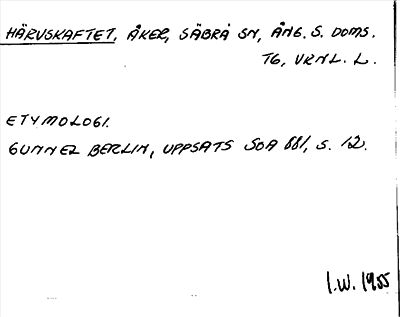 HÄRUSKAFTET, ÅKER, SÄBRÅ SN, ÅNG. S. DOMS.
TG, VRNL. L.
ETYMOLOGI.
GUNNEL BERLIN, UPPSATS SOA 881, S. 12.
I.W. 1955